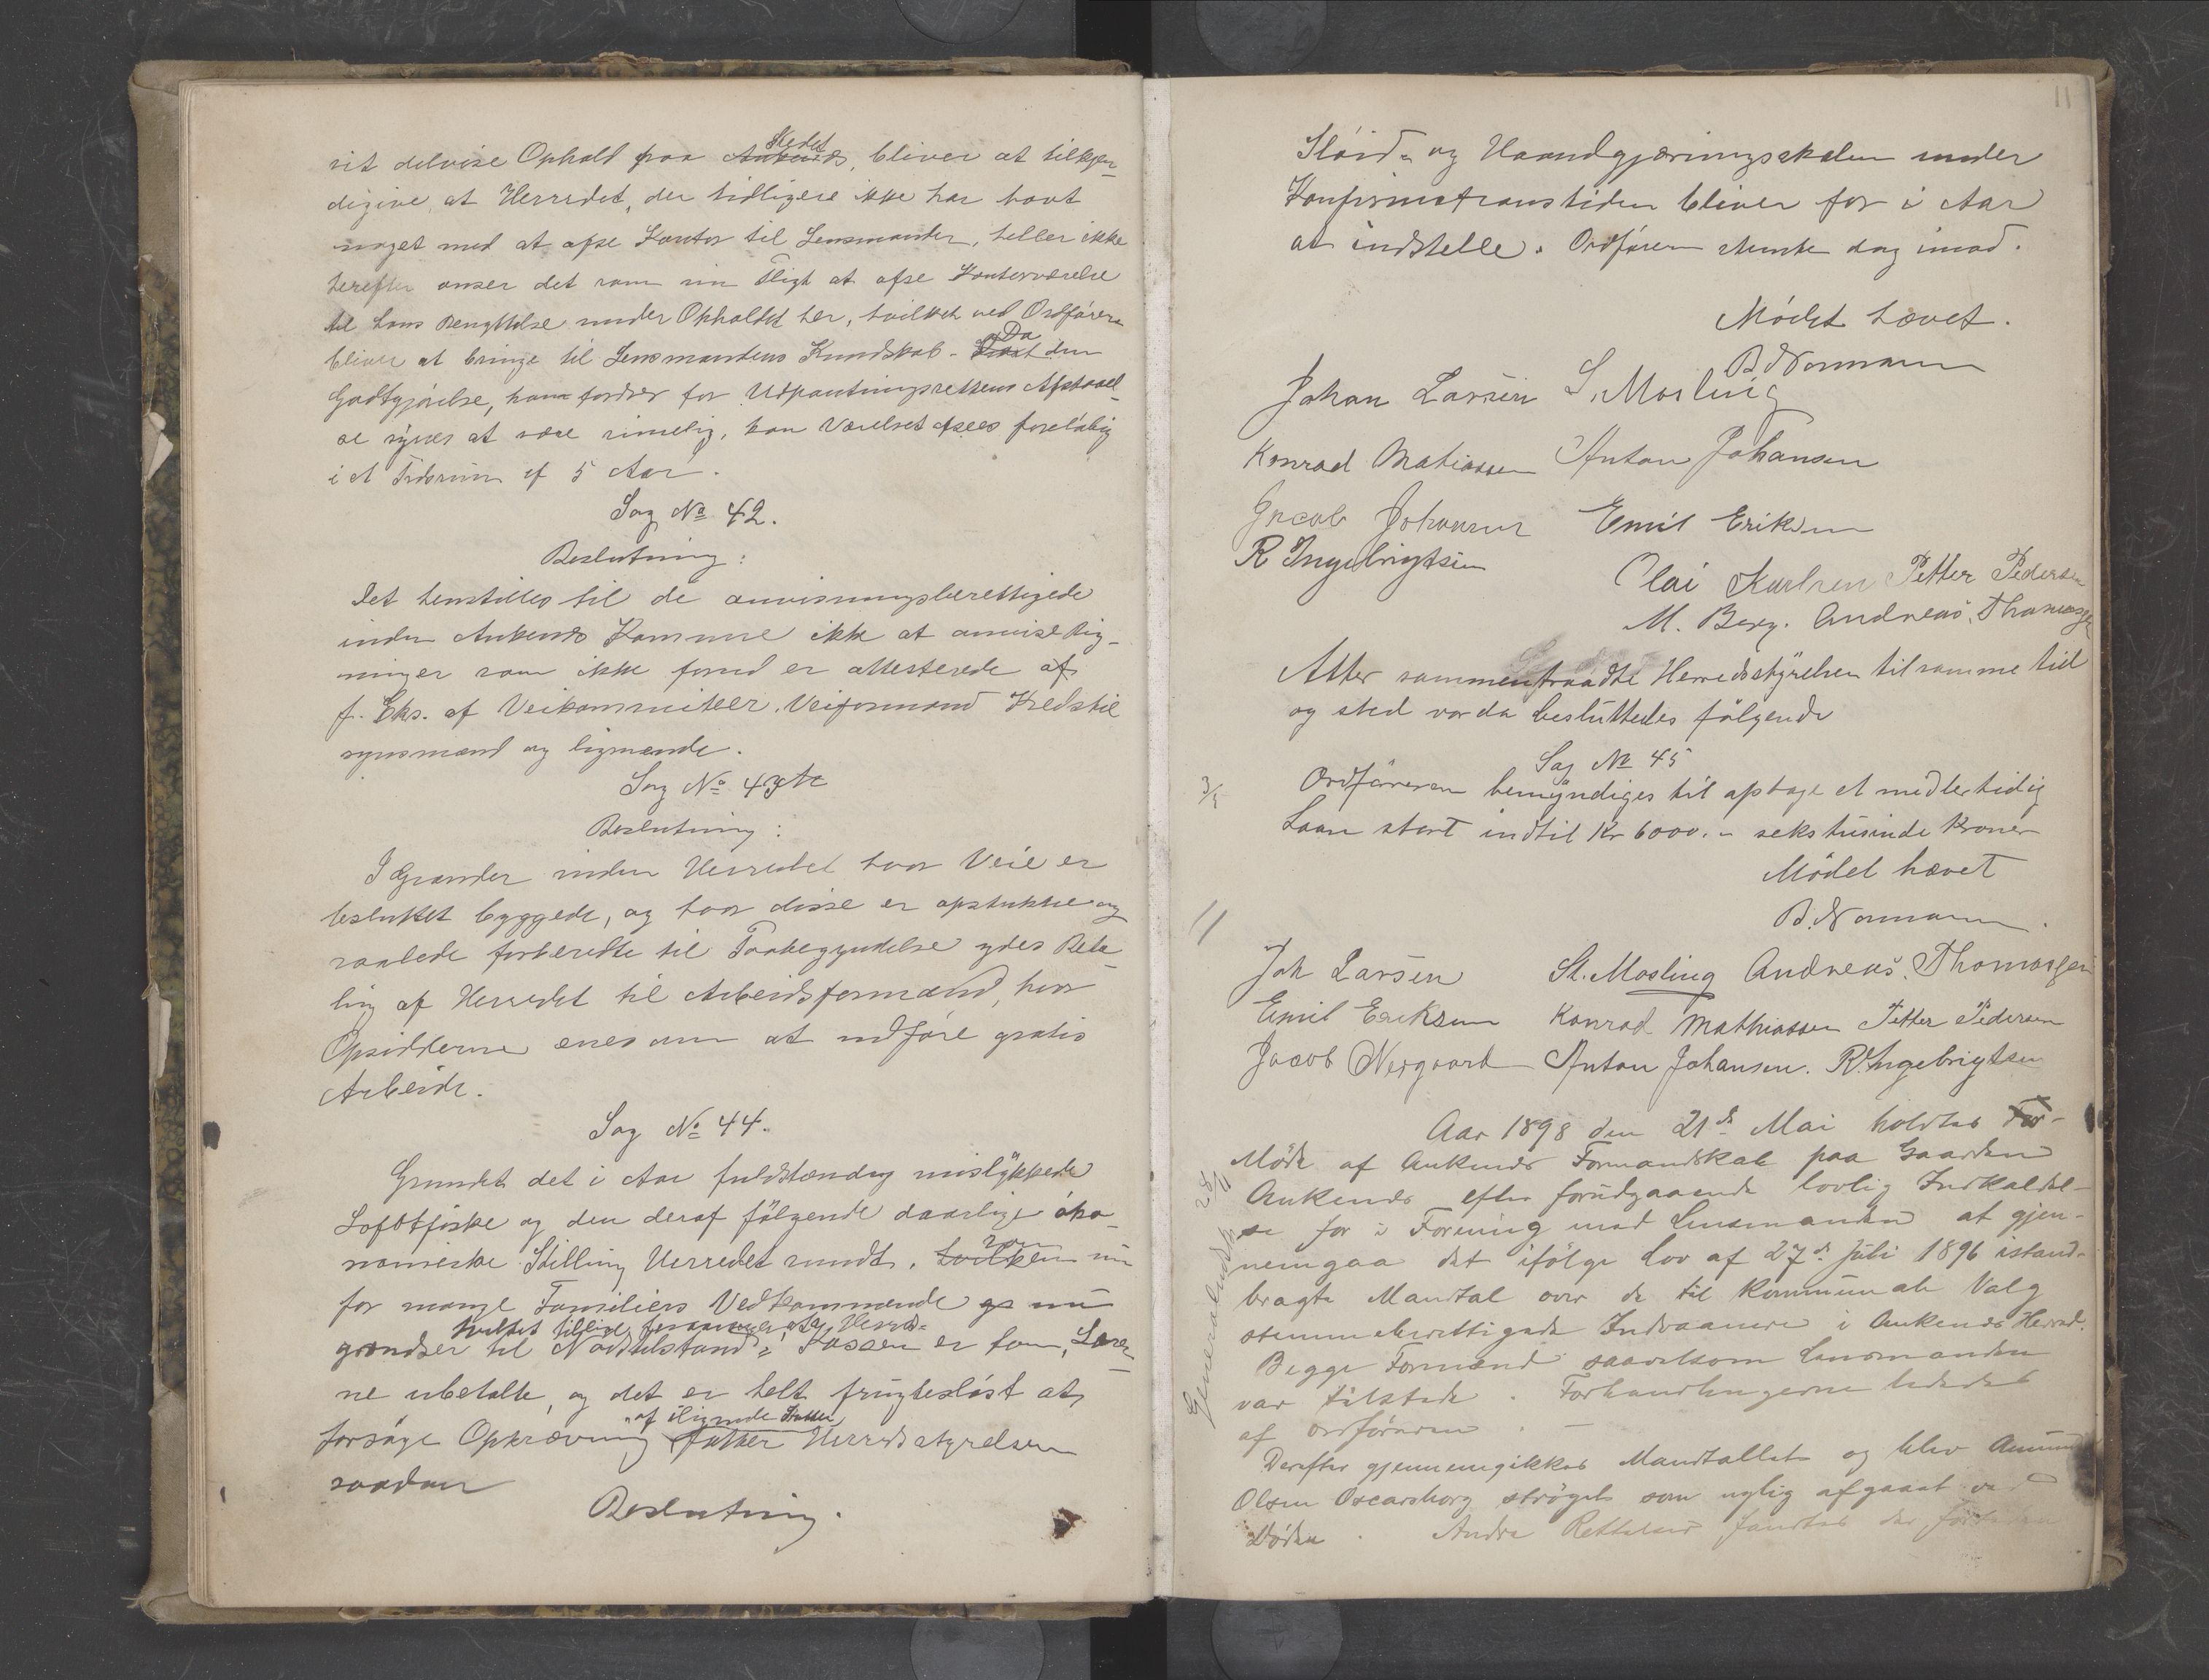 sit delvise Ophold paa Ankenes Stedet, bliver at tilkjen-
degive, at Herredet, der tidligere ikke har havt
noget med at afse Kontor til Lensmanden, heller ikke
herefter anser det som sin Pligt at afse Kontorværelse
til hans Benyttelse under Opholdet her, hvilket ved Ordføreren
bliver at bringe til Lensmandens Kundskab. Da den
Godtgjørelse, han fordrer for Udpantningsrettens Afhold-
se synes at være rimelig, kan Værelset afsees foreløbig
i et Tidsrum af 5 Aar.
Sag No 42.
Beslutning:
Det henstilles til de anvisningsberettigede
inden Ankenes Kommune ikke at anvise Reg-
ninger som ikke forud er attesterede af
f. Eks. af Veikommiteer, Veiformænd Kredstil
synsmænd og lignende.
Sag No 43
Beslutning:
I Grænder inden Herredet hvor Veie er
besluttet byggede, og hvor disse er opstukke og
saalede forberedte til Paabegyndelse ydes Beta-
ling af Herredet til Arbeidsformænd, hvor
Opsidderne enes om at udføre gratis
Arbeide.
Sag No 44.
Grundet det i Aar fuldstændig mislykkede
Lofotfiske og den deraf følgende daarlige øko-
nomiske Stilling Herredet rundt, hvilken som nu
for mange Familiers Vedkommende nu
hvilket tillige Herreds-
grændser til Nødstilstand, Kassen er tom, Lærer-
ne ubetalte, og det er helt frugtesløst at
af ilignede Skatter
forsøge Opkrævning fatter Herredsstyrelsen
saadan
Beslutning.
11
Sløid- og Haandgjæringsskolen under
Konfirmationstiden bliver for i Aar
at indstelle. Ordføreren stemte dog imod.
Mødet hævet.
B Normann
Johan Larsen S. Mosling
Konrad Matiassen Anton Johansen
Jacob Johansen Emil Eriksen
R Ingebrigtsen
Olai Karlsen Petter Pedersen
M. Berg. Andreas Thomasen
Atter sammentraadte Herredsstyrelsen til samme tid
og sted vor da besluttedes følgende
Sag No 45
3/5
Ordføreren bemyndiges til optage et midlertidig
Laan stort indtil Kr 6000.- sekstusinde Kroner
Mødet hævet
B. Normann.
Joh Larsen St. Mosling Andreas Thomasen
Emil Eriksen Konrad Mathiassen Petter Pedersen
Jacob Nergaard Anton Johansen. R. Ingebrigtsen
Aar 1898 den 21de Mai holdtes For-
Møde af Ankenes Formandskab paa Gaarden
Ankenes efter forudgaaende lovlig Indkaldel-
se for i Forening med Lensmanden at gjen-
nemgaa det ifølge Lov af 27de Juli 1896 istand-
bragte Mandtal over de til kommunale Valg
stemmeberettigede Indvaanere i Ankenes Herred.
Begge Formænd saavelsom Lensmanden
var tilstede. Forhandlingerne lededes
af ordføreren.
Derefter gjennemgikkes Mandtallet og blev Amund
Olsen Oscarsborg strøget som uglig afgaaet ved
Døden. Andre Rettelser fandtes der